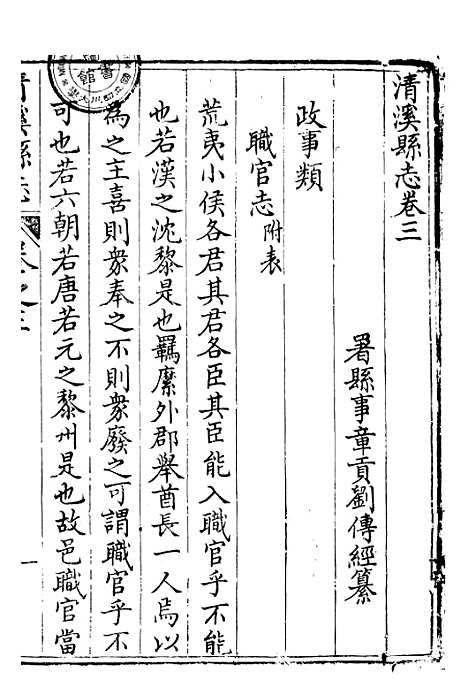 清溪縣志卷三
署縣事章貢劉傳經纂
政事類
職官志附表
荒夷小侯各君其君各臣其臣能入職官乎不能
也若漢之沈黎是也羈縻外郡舉酋長一人焉以
為之主喜則衆奉之不則衆廢之可謂職官乎不
可也若六朝若唐若元之黎州是也故邑職官當
清溪縣志
卷之三
一